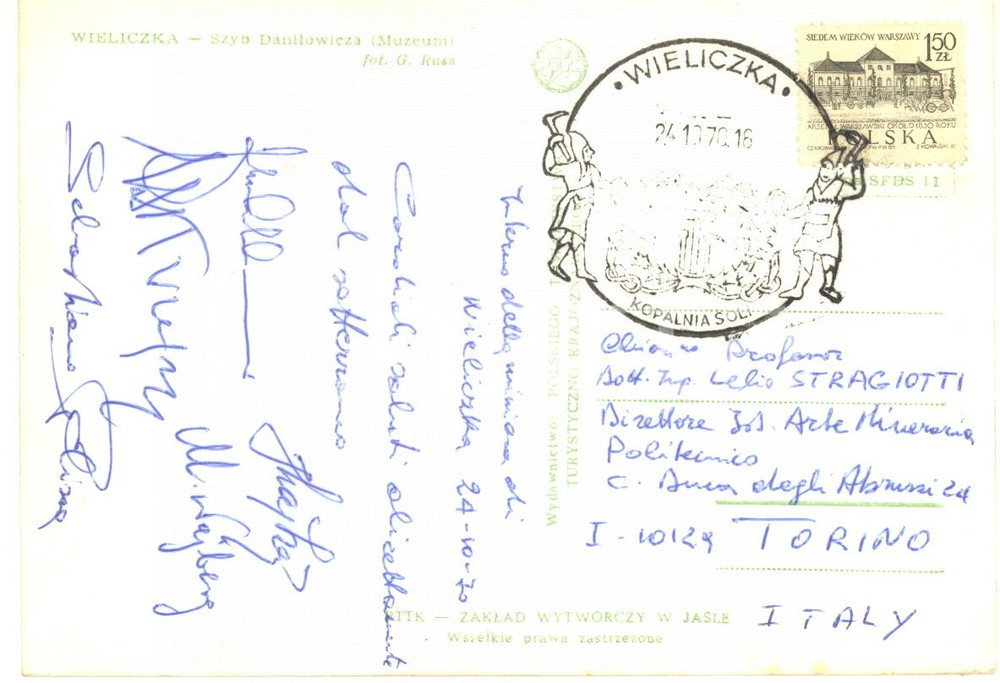 WIELICZKA — Szyb Daniłowicza (Muzeum)
fot. G. Russ
WIELICZKA
24.10.70.16
KOPALNIA SOLI
SIEDEM WIEKÓW WARSZAWY
1 50 ZŁ
ARSENAŁ WARSZAWSKI OKOŁO 1830 ROKU
POLSKA
SFBS 11
Interno della miniera di
Wieliczka 24-10-70
Cordiali saluti direttamente
dal sotterraneo
Sebastiano
Wydawnictwo POLSKIEGO
TURYSTYCZNO KRAJOZ
Chiar.mo Professor
Dott. Ing. Lelio STRAGIOTTI
Direttore Ist. Arte Mineraria
Politecnico
C. Duca degli Abruzzi 24
I-10129 TORINO
ITALY
PTTK — ZAKŁAD WYTWÓRCZY W JAŚLE
Wszelkie prawa zastrzeżone